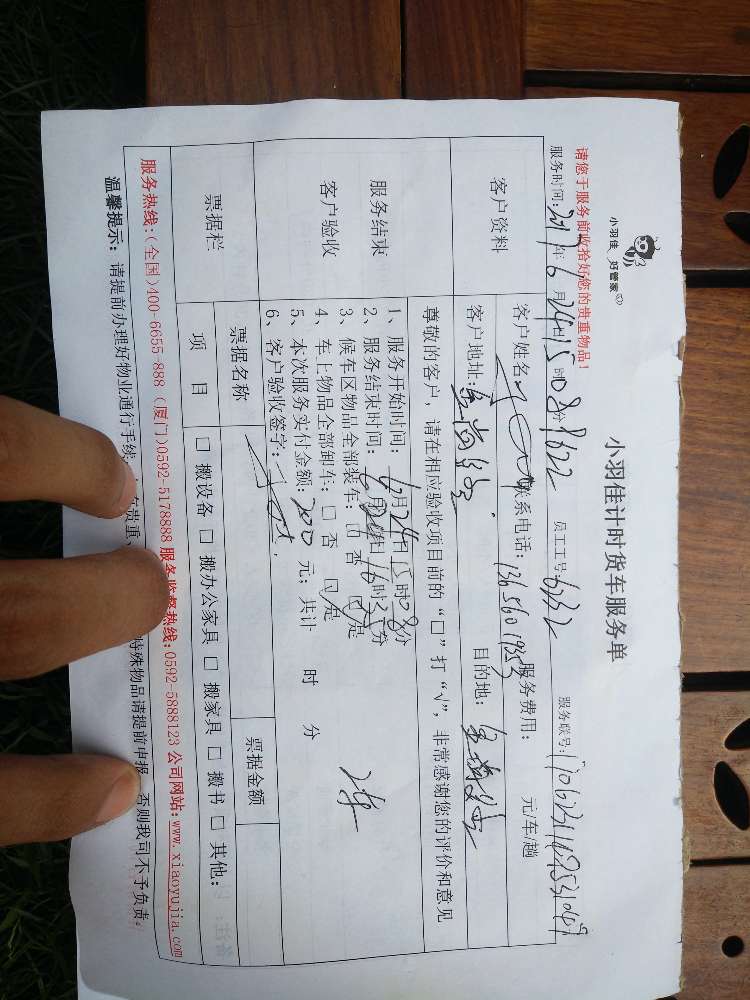 小羽佳 好管家
小羽佳计时货车服务单
请您于服务前收拾好您的贵重物品!
服务时间:2017年6月24日15时08分 员工工号:6232 服务联号:
客户资料
客户姓名 联系电话: 服务费用: 元/车/趟
客户地址: 目的地:
尊敬的客户,请在相应验收项目前的“□”打“√”,非常感谢您的评价和意见
服务结束
客户验收
1、服务开始时间:6月24日15时08分
2、服务结束时间:6月24日16时35分
3、候车区物品全部装车:□ 否 ☑是
4、车上物品全部卸车:□ 否 ☑是
5、本次服务实付金额:200元;共计 时 分
6、客户验收签字:
票据栏
票据名称 票据金额
项 目 □ 搬设备 □ 搬办公家具 □ 搬家具 □ 搬书 □ 其他:
服务热线:(全国)400-6655-888 (厦门)0592-5178888 服务监督热线:0592-5888123 公司网站:www.xiaoyujia.com
温馨提示:请提前办理好物业通行手续 贵重、特殊物品请提前申报,否则我司不予负责。